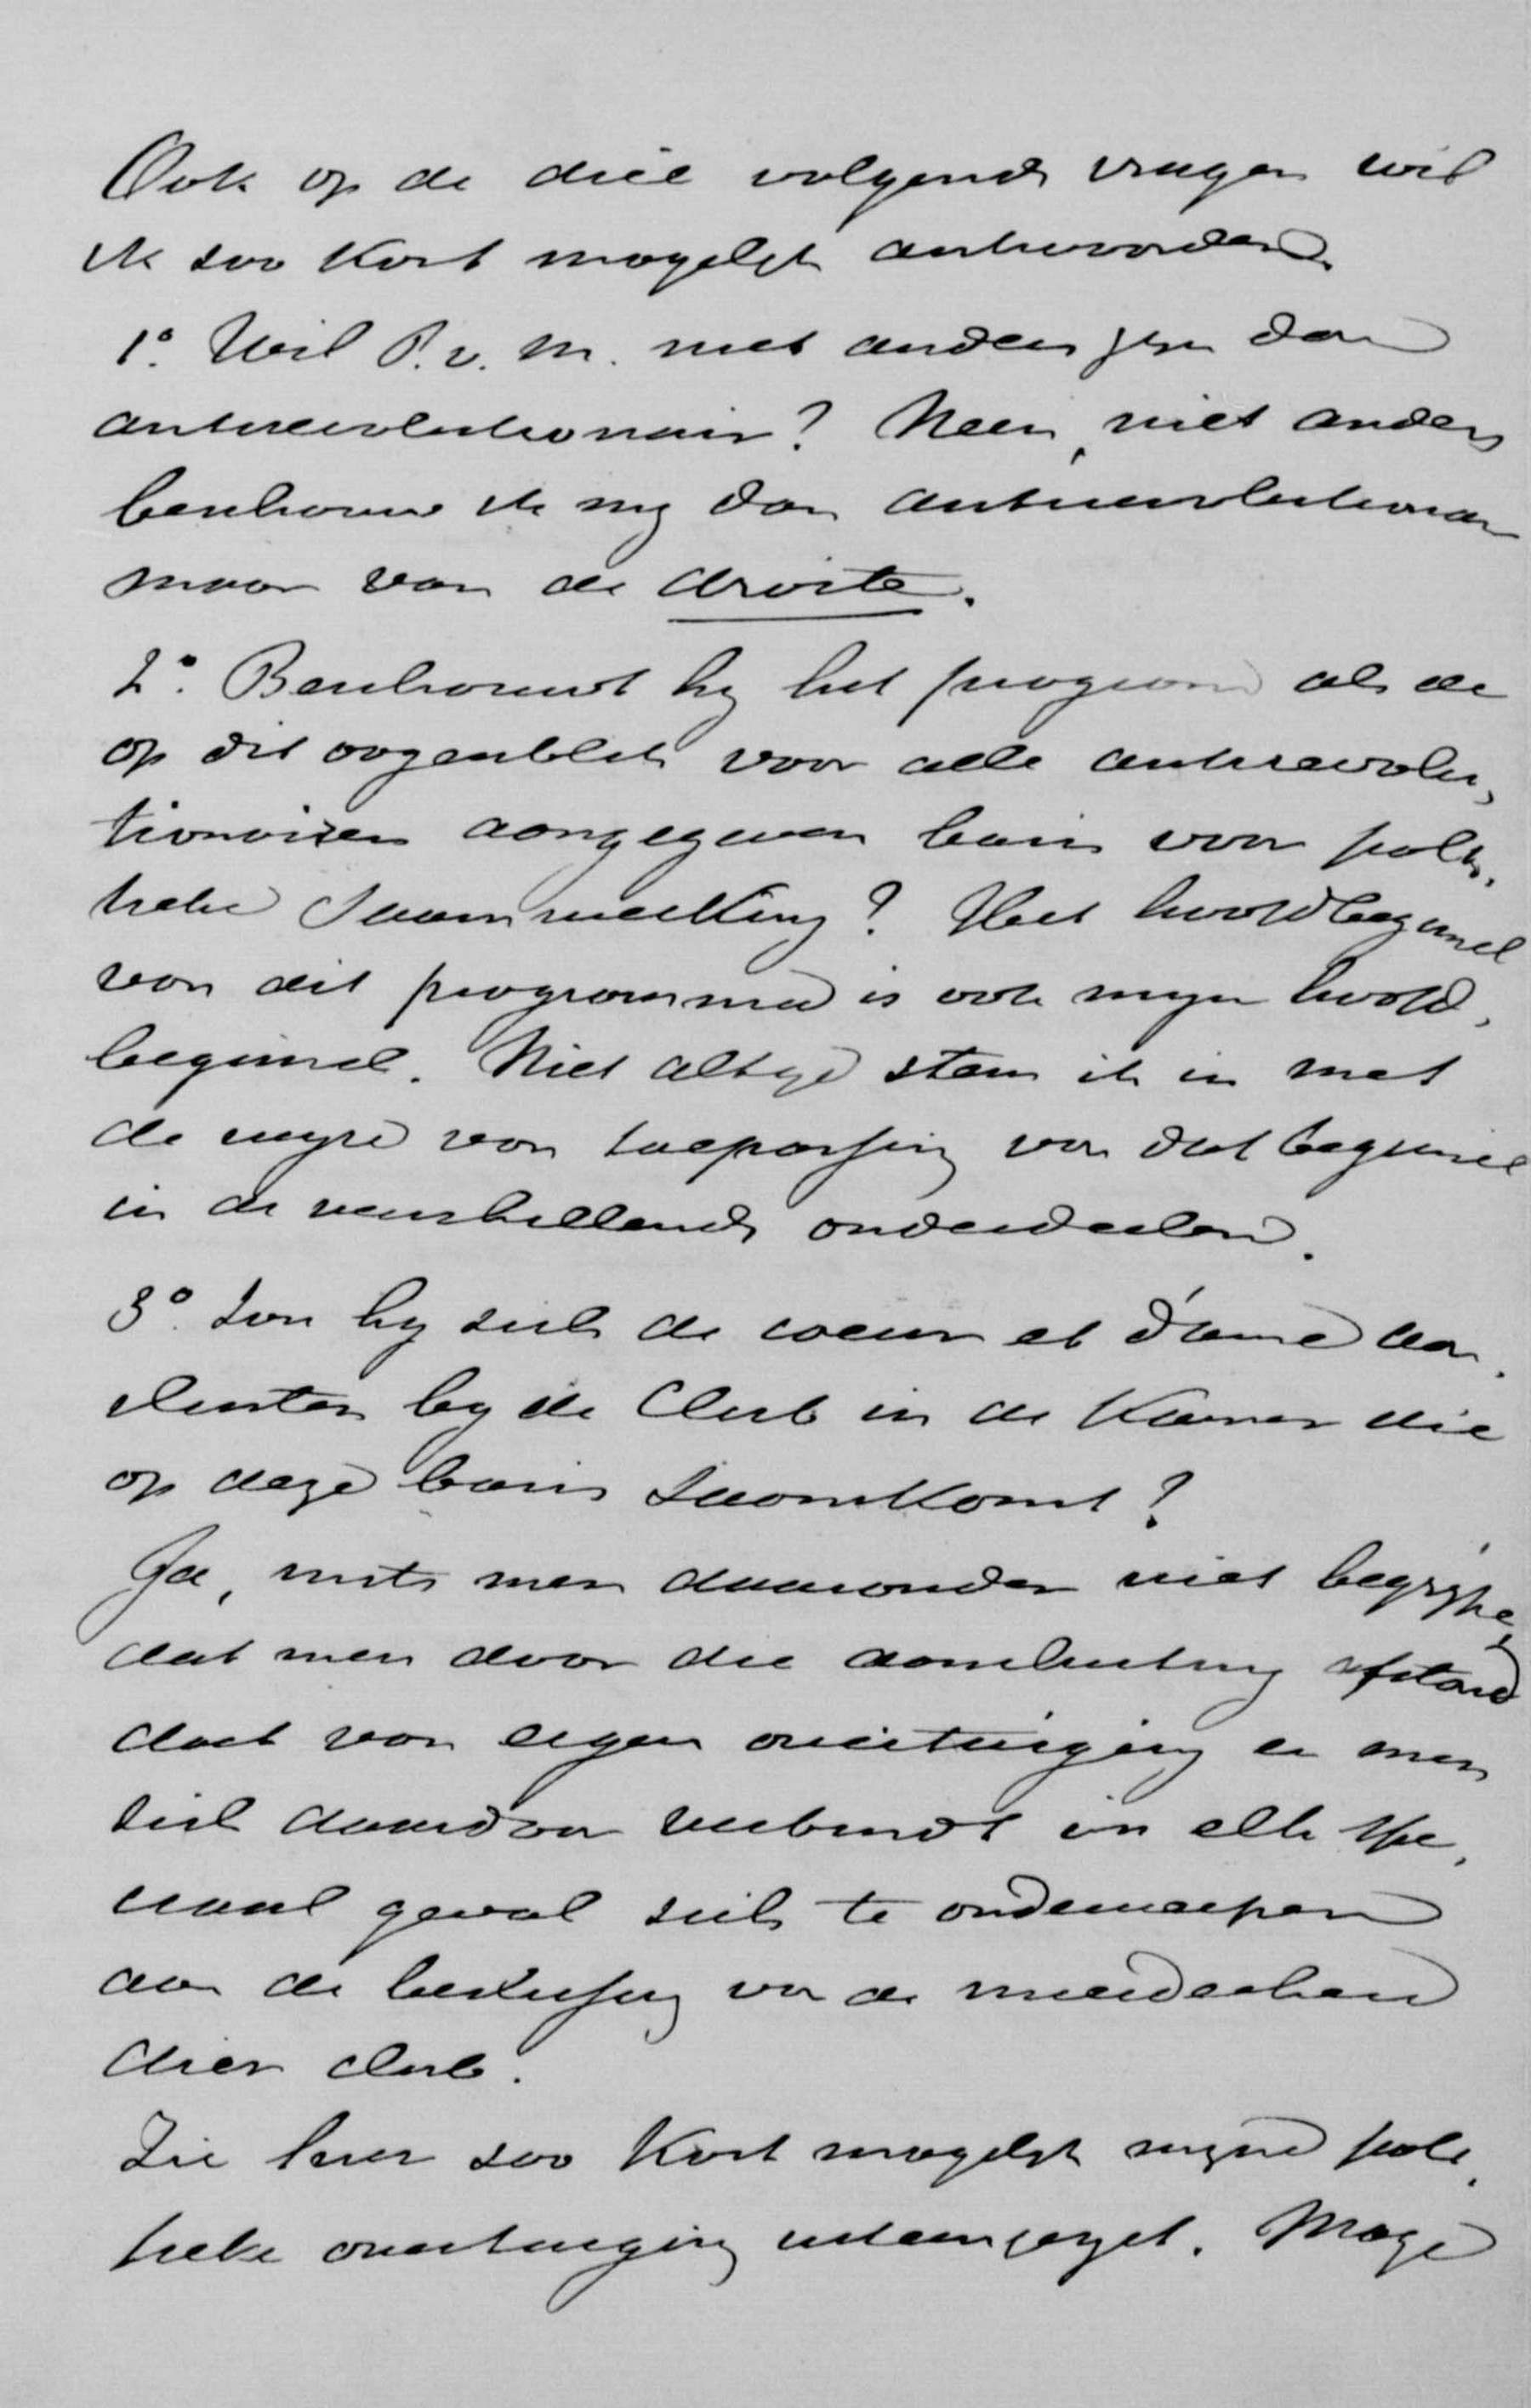 Ook op de drie volgende vragen wil
ik zoo kort mogelijk antwoorden.
1°. Wil P. v. M. niet anders zijn dan
antirevolutionair? Neen, niet anders
beschouw ik mij dan antirevolutionair
maar van de droite.
2°. Beschouwt hij het program als de
op dit oogenblik voor alle antirevolu-
tionairen aangegeven basis voor poli-
tieke Saamwerking? Het hoofdbeginsel
van dit programma is ook mijn hoofd-
beginsel. Niet altijd stem ik in met
de wijze van toepassing van dat beginsel
in de verschillende onderdeelen.
3°. Zou hij zich de coeur et d'ame aan-
sluiten bij de Club in de Kamer die
op deze basis saamkomt?
Ja, mits men daaronder niet begrijpe,
dat men door die aansluiting afstand
doet van eigen overtuiging en men
zich daardoor verbindt in elk spe-
ciaal geval zich te onderwerpen
aan de beslissing van de meerderheid
dier club.
Zie hier zoo kort mogelijk mijne poli-
tieke overtuiging uiteengezet. Moge